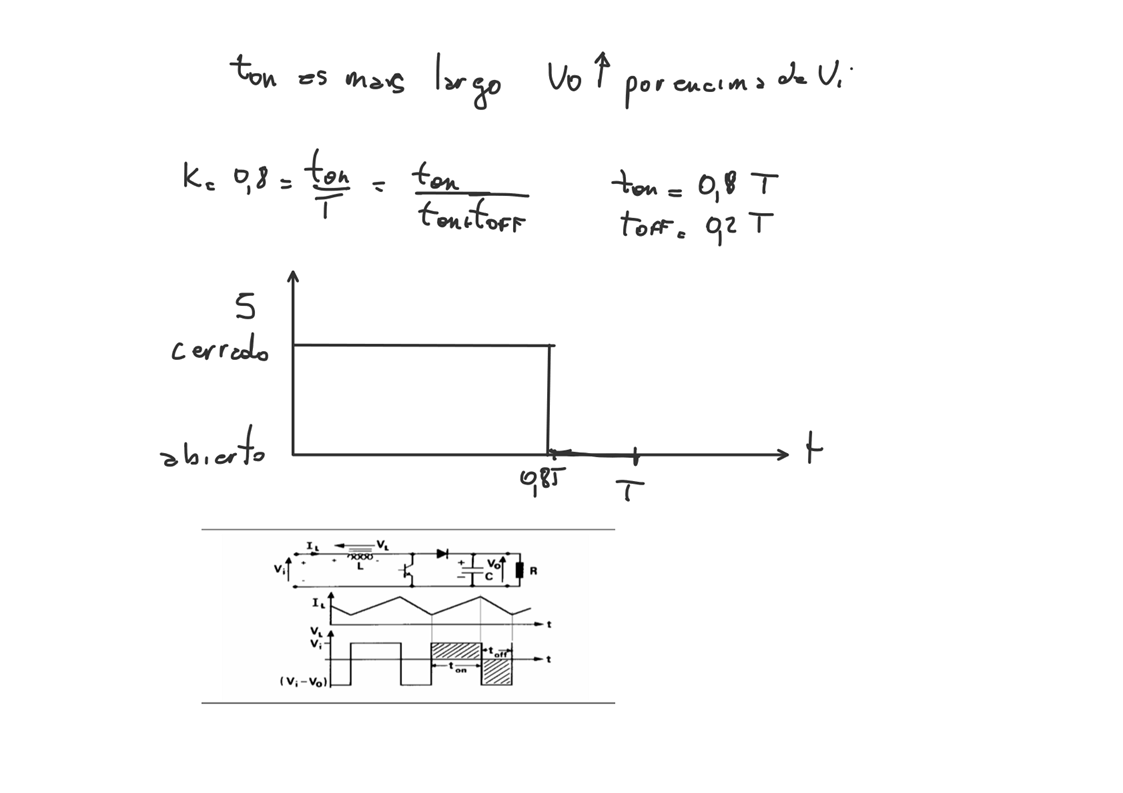 ton es mas largo Vo ↑ por encima de Vi
K = 0,8 = ton/T = ton/(ton+tOFF) ton = 0,8 T
tOFF = 0,2 T
S
cerrado
abierto
t
0,8T T
IL VL
Vi L + − Vo C R
IL
t
VL
Vi
toff t
ton
(Vi−Vo)